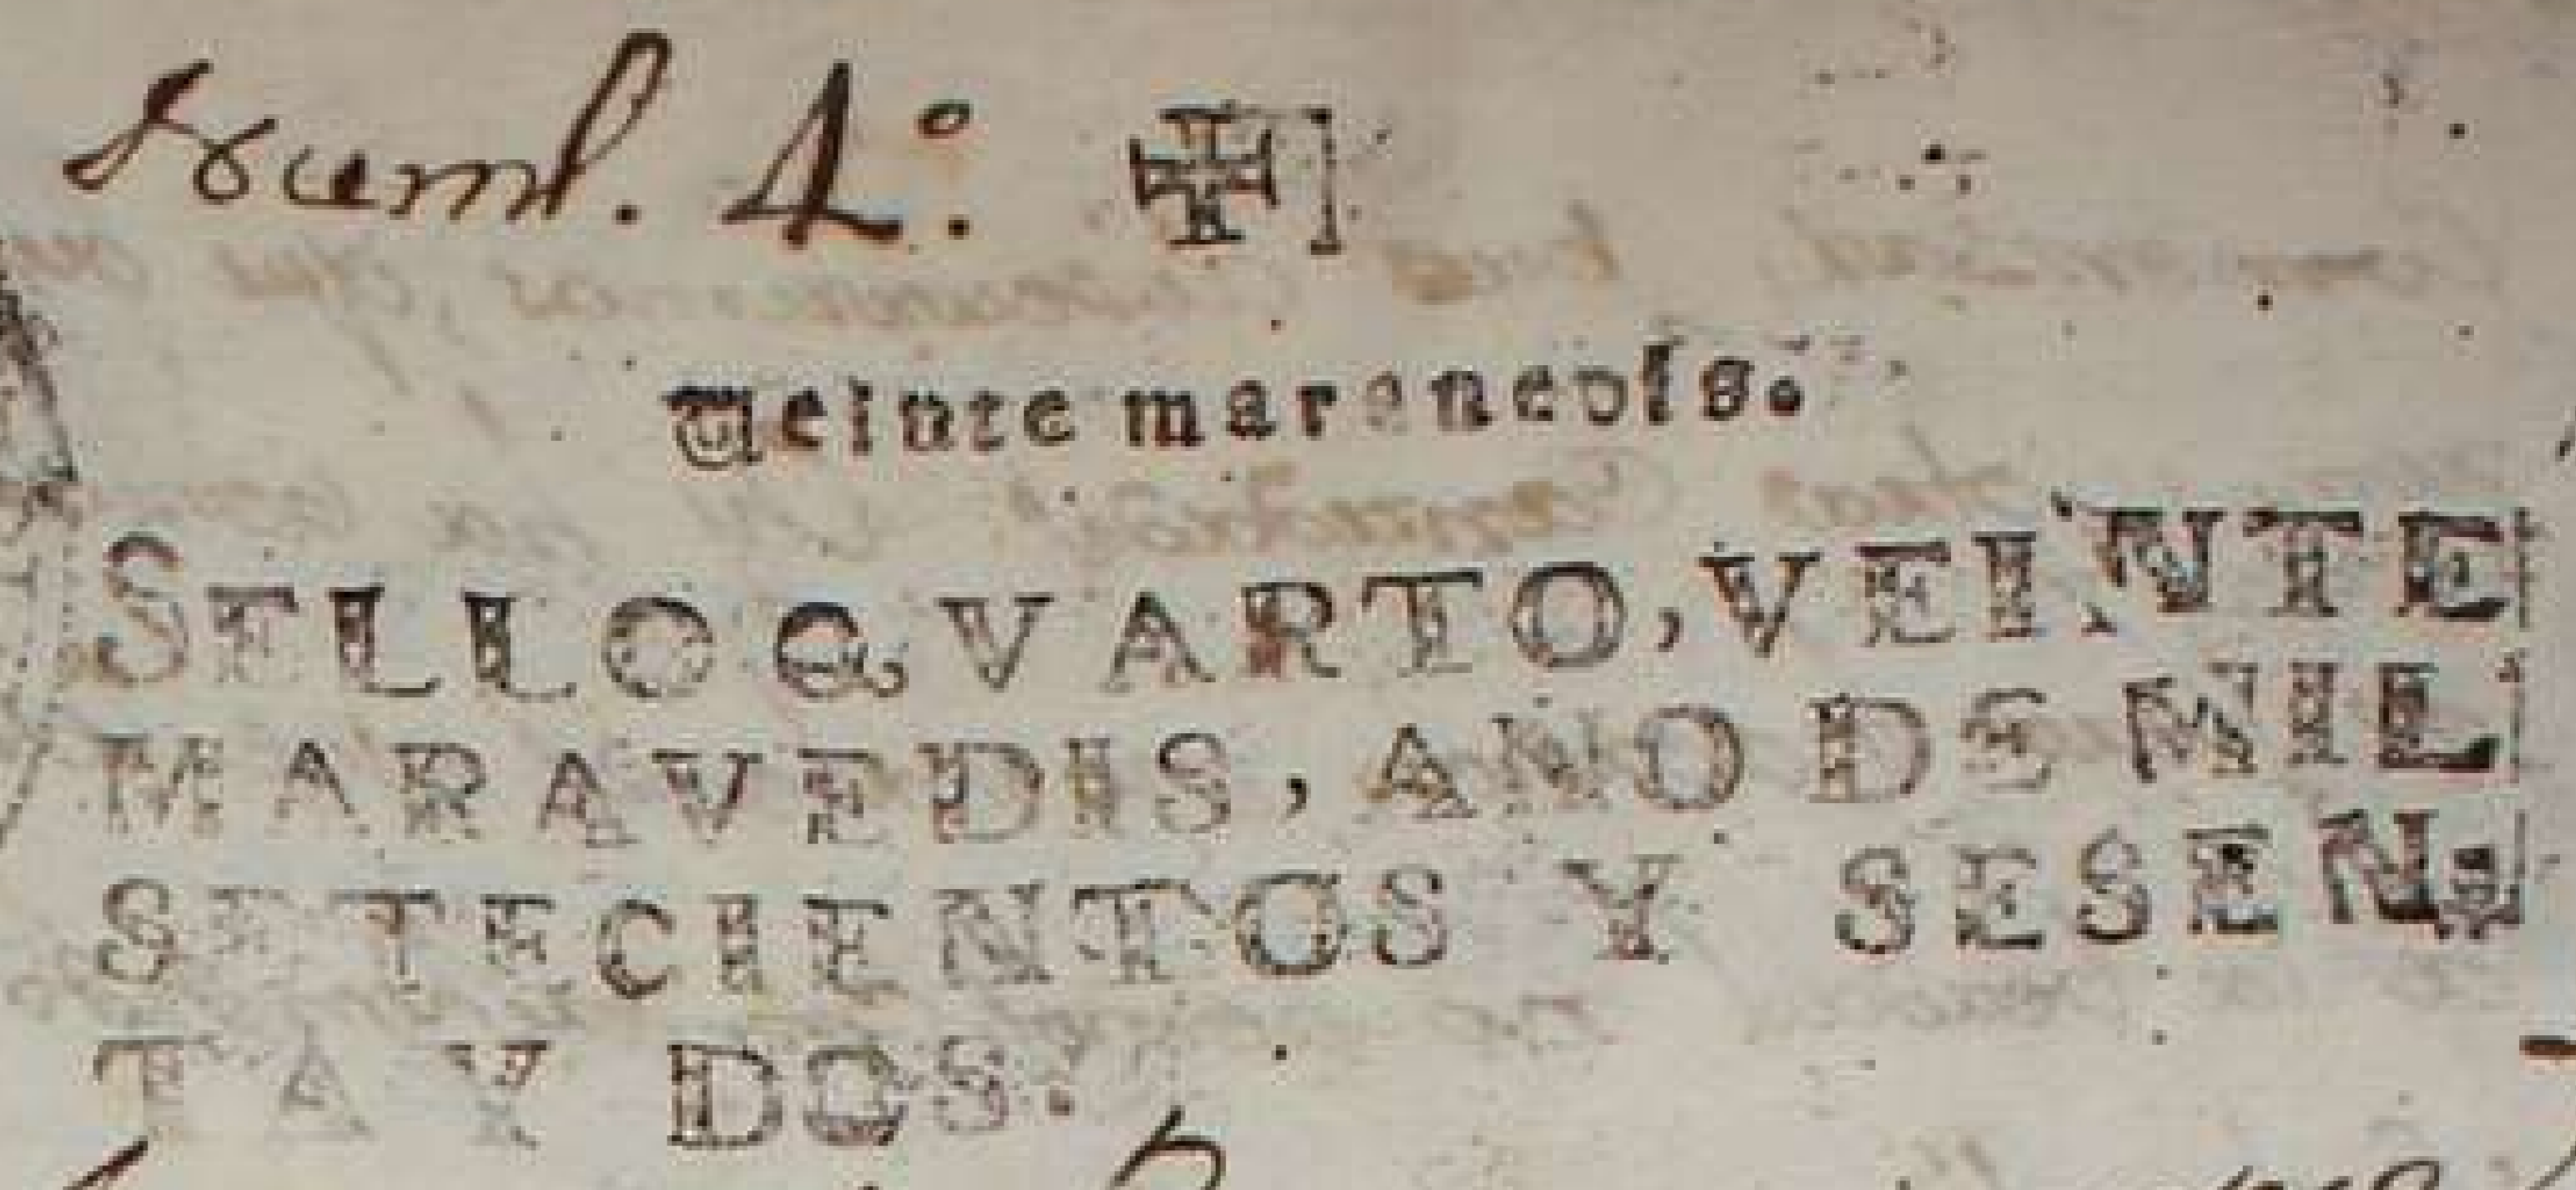 Numº. 4º.
Veinte marauedis.
SELLO QVARTO, VEINTE
MARAVEDIS, AÑO DE MIL
SETECIENTOS Y SESEN-
TA Y DOS.